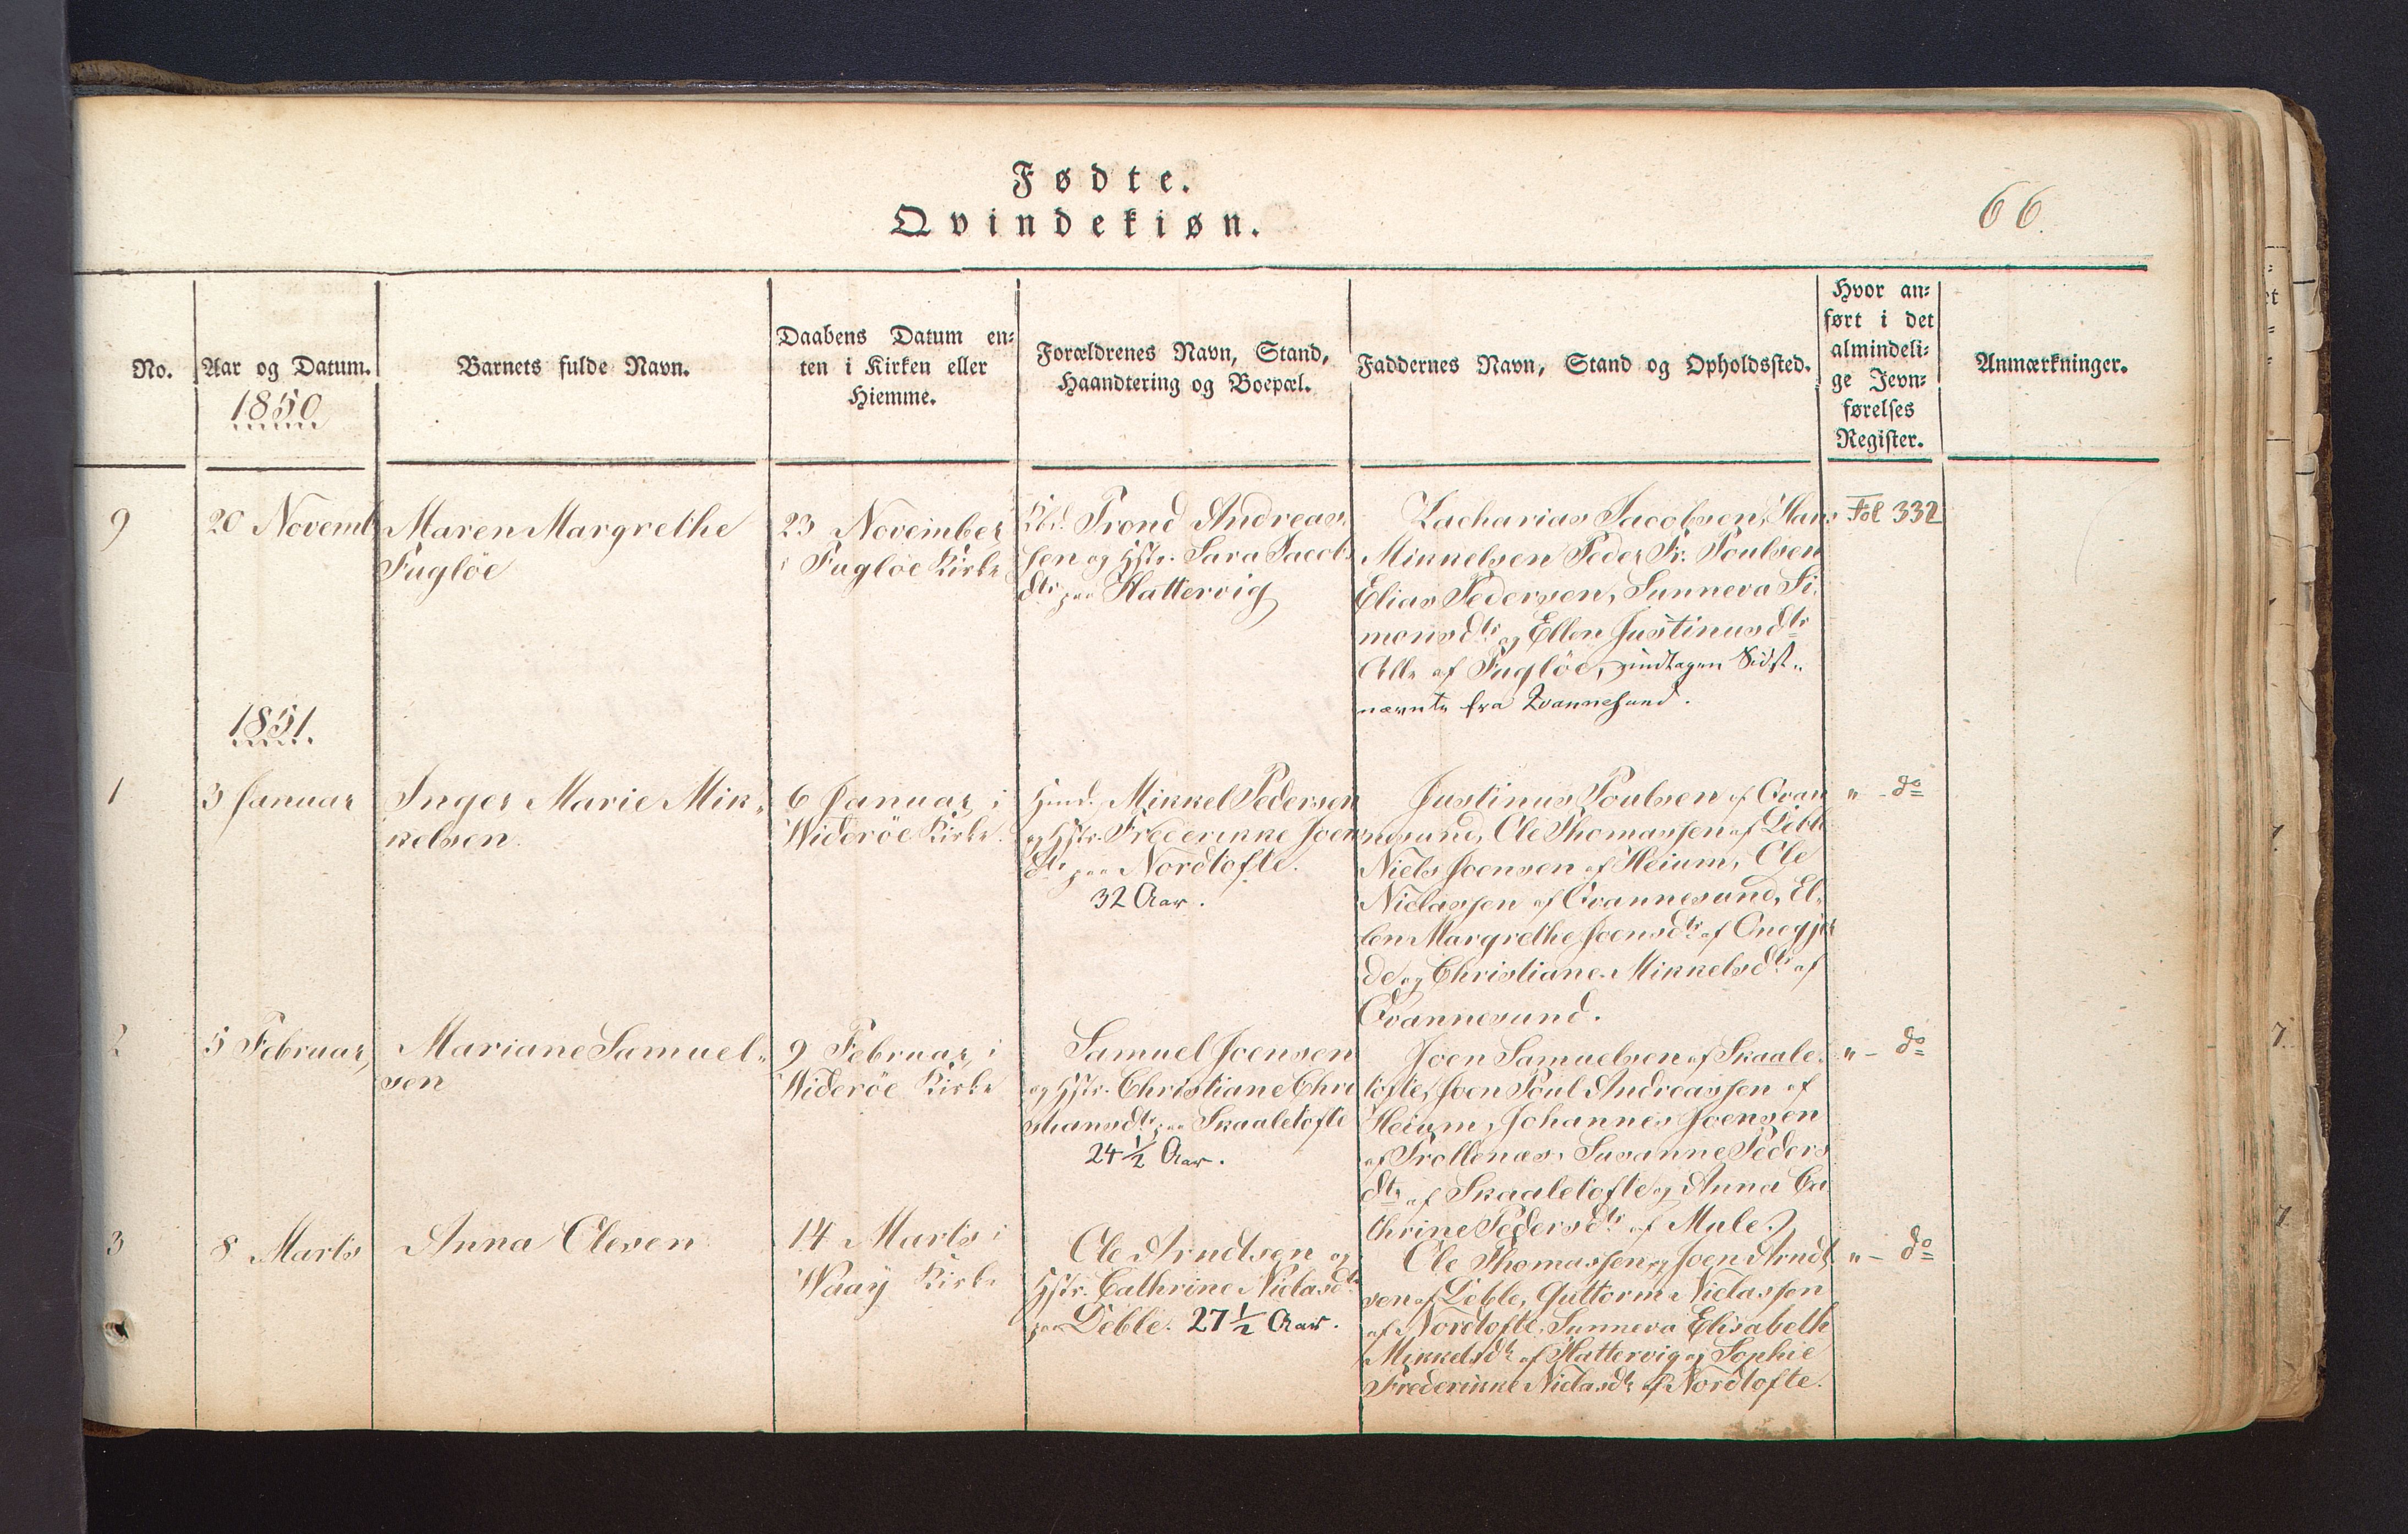 Fødte.
Qvindekiøn.
66.
No.
Aar og Datum.
1850
Barnets fulde Navn.
Daabens Datum en=
ten i Kirken eller
Hiemme.
Forældrenes Navn, Stand,
Haandtering og Boepæl.
Faddernes Navn, Stand og Opholdssted.
Hvor an=
ført i det
almindeli=
ge Jevn=
førelses
Register.
Anmærkninger.
9
20 Novemb
Maren Margrethe
Fugløe
23 November
i Fugløe Kirke
Trond Andreas
sen og Hstr. Sara Jacobs
dtr paa Hattervig
Zacharias Jacobsen, Hans
Mikkelsen Peder Fr. Poulsen
Elias Pedersen, Sunneva Si,
monsdtr og Ellen Justinusdtr
Alle af Fugløe, undtagen Sidst,,
nævnte fra Qvannesund.
Fol 332
1851.
1
3 Januar
Inger Marie Mik,,
kelsen.
6 Januar i
Widerøe Kirke.
Hmd. Mikkel Pedersen
og Hstr. Frederikke Joens
dtr paa Nordtofte.
32 Aar.
Justinus Poulsen af Qvan
nesund, Ole Thomassen af Deble
Niels Joensen af Heium, Ole
Niclassen af Qvannesund, El,
len Margrethe Joensdtr af Onegjer
de og Christiane Mikkelsdtr af
Qvannesund.
" - do
2
5 Februar,
Mariane Samuel,,
sen
9 Februar, i
Widerøe Kirke
Samuel Joensen
og Hstr. Christiane Chri
stiansdtr paa Skaaletofte
24 1/2 Aar.
Joen Samuelsen af Skaale,
tofte, Joen Poul Andreassen af
Heium, Johannes Joensen
af Trollenæs, Susanne Peders
dtr af Skaaletofte og Anna Ca
thrine Pedersdtr af Mule.
" - do
3
8 Marts
Anna Olesen
14 Marts i
Waay Kirke
Ole Arndtsen og
Hstr. Cathrine Niclasdtr
paa Deble. 27 1/2 Aar.
Ole Thomassen og Joen Arndt
sen af Deble, Guttorm Niclassen
af Nordtofte, Sunneva Elisabeth
Mikkelsdtr af Hattervig og Sophie
Frederikke Niclasdtr af Nordtofte.
" - do